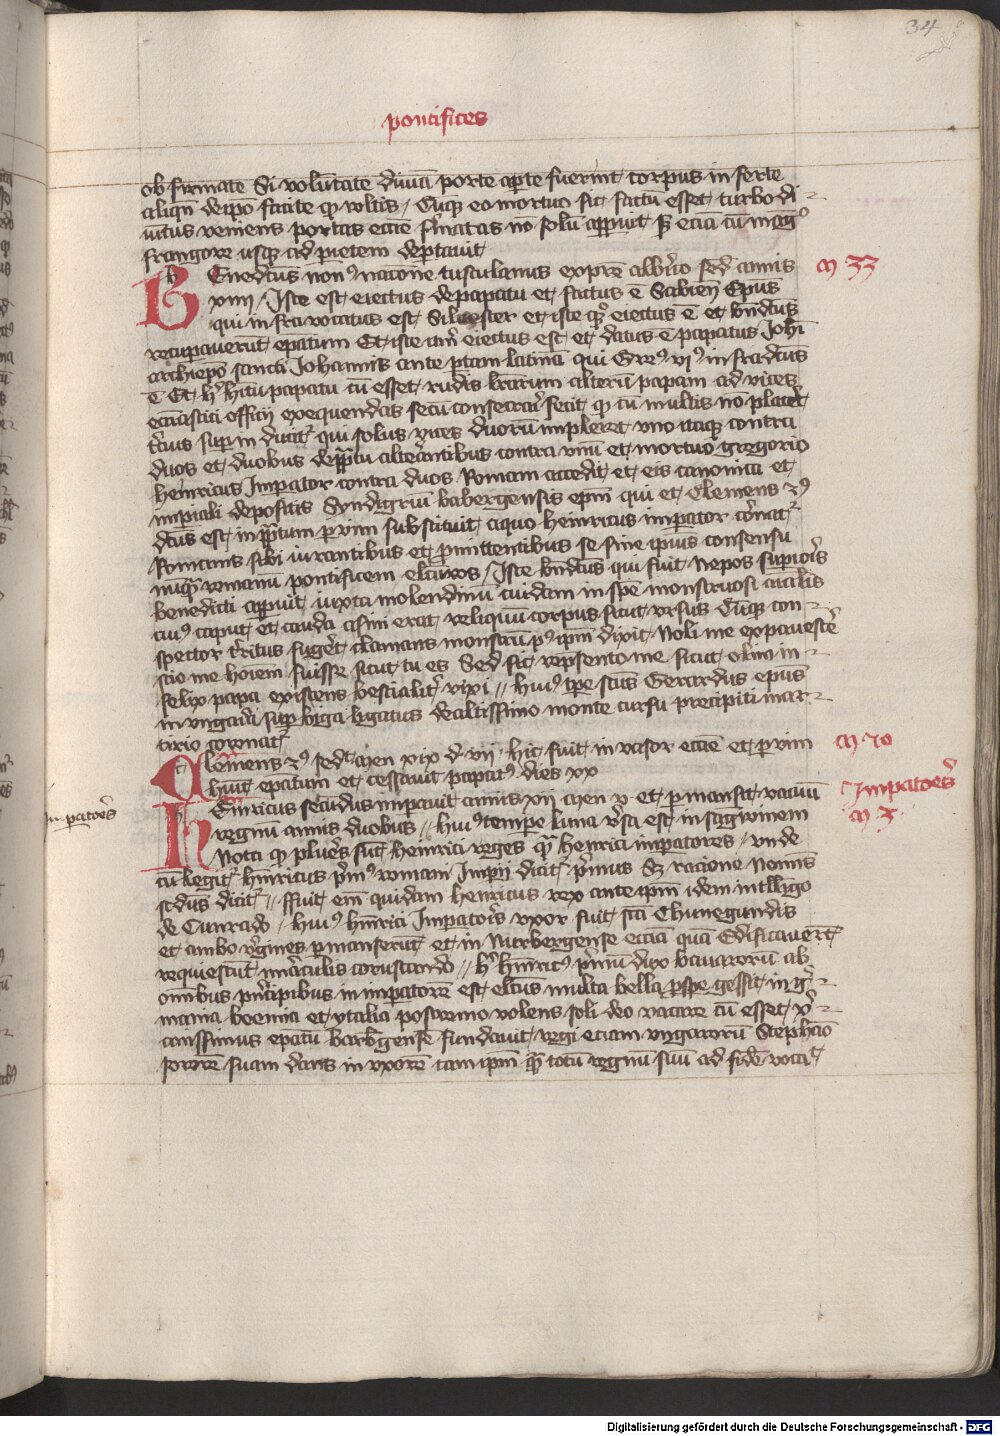 34
pontifices
obfirmate Si volūtate divīa porte apte fuerint corpus inferte
aliqñ deipō facite qͥ voltis / Cūqꝫ eo mortuo sic factū esset turbo di
vitus veniens portas eccīe firmatas nō solū appuit sꝫ ecia cū mag̊
frangore usqꝫ ad pietem deportauit
BEnedictus nonꝰ nacione tusculanus ex pr̄e albr̄ico sed annis
xiiii / Iste est eiectus de papatu et factus ē Sabien̄ Ep̄us
qui in fra vocatus est Siluester et iste qͦꝫ eiectus ē et bn̄dictus
recupauerūt ep̄atum Et iste itm̄ eiectus est et datus ē papatus Joh̄i
archiep̄o sancti Johannis ante portam latinā qui Greꝰ viꝰ in fradictus
ē Et hͥ hn̄tū papatu cū esset rudis lr̄arum alterū papam ad vices
eccīastici officii exequendas secū consecrari fecit qͥ cū multis nō placet
tercius sup in ducitᷣ qui solus vices duorū impleret vno itaqꝫ contra
duos et duobus de pꝑatu altercantibus contra vnū et mortuo gregorio
henricus Impator contra duos Romam accedit et eis canonica et
impiali depositis Syndigerū babergensis ep̄m qui et Clemens 2ꝰ
dictus est in pꝑatum per vim substituit aquo heinricus impator coronatᷣ
Romanis sibi iurantibus et promittentibus se sine ipius consensu
nūqͣ romanū pontificem electuros / Iste bn̄dictus qui fuit nepos supioris
benedicti apparuit iuxta molendinū cuidam in spē monstruosi aīalis
cuiꝰ caput et cauda asini erat reliquū corpus sicut vrsus Cūqꝫ con
spector tritus fugeret clamans monstrū pꝰ ipm dixit Noli me expauescere
scio me hoīem fuisse sicut tu es Sed sic represento me sicut olim in
felix papa existens bestialiter vixi // huiꝰ tp̄e sc̄us Gerardus ep̄us
in vngaria sup biga ligatus de altissimo monte cursu precipiti mar
tirio coronatᷣ
Clemens 2ꝰ sedit men xix d vii · hic fuit inuasor eccīe et per vim
huit ep̄atum et cessauit papatꝰ dies xx
HEinricus secūdus impauit annis xii men v et pmansit vacuū
regnū annis duobus // huiꝰ tempe luna v̄sa est in sagwinem
Nota qͥ plures sūt heinrici reges qͣ henrici impatores / vnde
cū legitᷣ hinricus primꝰ romani Impii dicitᷣ primus Sꝫ racione nominis
scdus dicitᷣ // ffuit em̄ quidam henricus rex ante ipm idem intelligo
de Cunrado // huiꝰ hinrici Impatoris vxor fuit scā Chunegundis
et ambo vgines pmanserūt et in Nurbergense eccīa quā Edificauerūt
requiescūt miraculis coruscando // hͥ hinricꝰ primū dux bauarorū ab
omībus principibus in impatorē est electus multa bella prospe gessit in ger
mania boemia et ytalia postremo volens soli deo vacare cū esset xp̄i
anissimus ep̄atū barb̄gense fundauit regi eciam vngarorū Stephano
sororē suam dans in vxorē tam ipm qͣ totū regnū suū ad fidē vocauit
m 33
m 70
Impatores
m 3
Impatores
Digitalisierung gefördert durch die Deutsche Forschungsgemeinschaft - DFG